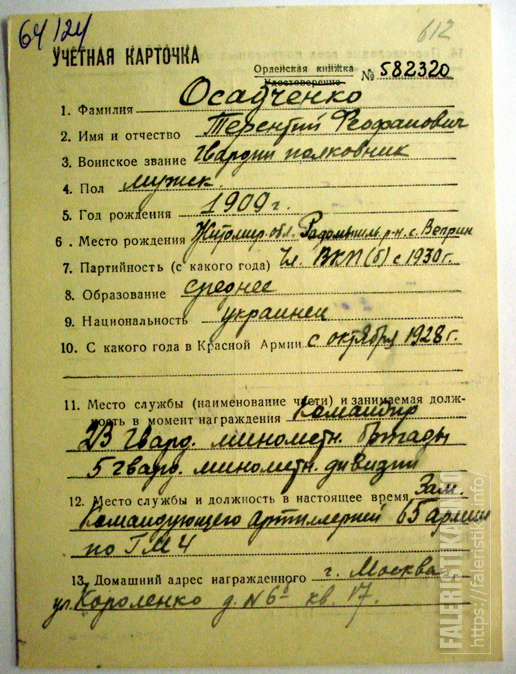 64/24
612
УЧЕТНАЯ КАРТОЧКА
Орденская книжка
Удостоверение № 582320
1. Фамилия Осадченко
2. Имя и отчество Терентий Феофанович
3. Воинское звание Гвардии полковник
4. Пол мужск.
5. Год рождения 1909 г.
6. Место рождения Житомир. обл. Радомышль. р-н. с. Веприн
7. Партийность (с какого года) Чл. ВКП(б) с 1930 г.
8. Образование среднее
9. Национальность украинец
10. С какого года в Красной Армии с октября 1928 г.
11. Место службы (наименование части) и занимаемая долж-
ность в момент награждения Командир
23 Гвард. минометн. бригады
5 гвард. минометн. дивизии
12. Место службы и должность в настоящее время Зам.
Командующего артиллерией 65 армии
по ГМЧ
13. Домашний адрес награжденного г. Москва,
ул. Короленко д. № 6 кв. 17.
FALERISTIKA.INFO
https://faleristika.info